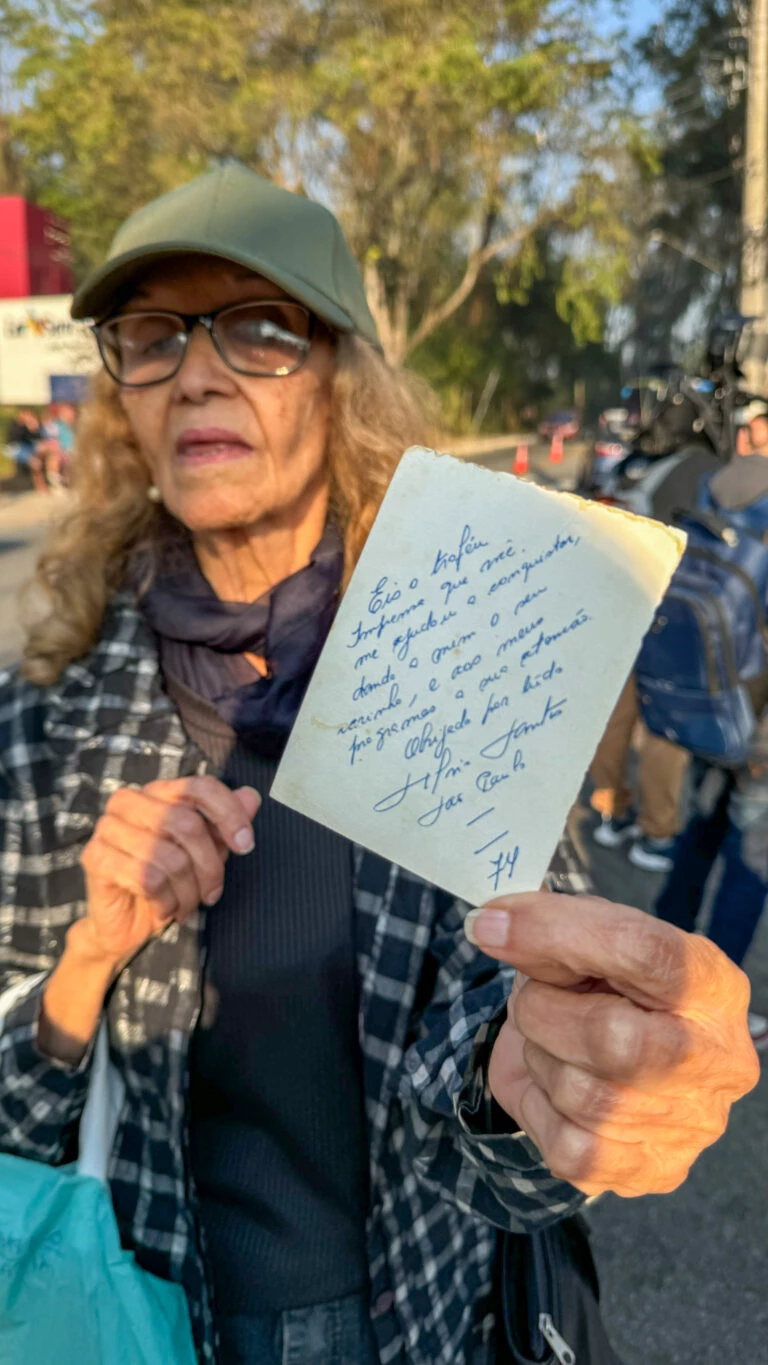 Eis o troféu
Imprensa que você
me ajudou a conquistar,
dando a mim o seu
carinho, e aos meus
programas a sua atenção.
Obrigado por tudo
Silvio Santos
São Paulo
74